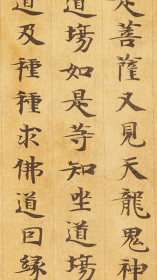 是菩薩又見天龍鬼神
道場如是等知坐道場
道及種種求佛道因縁